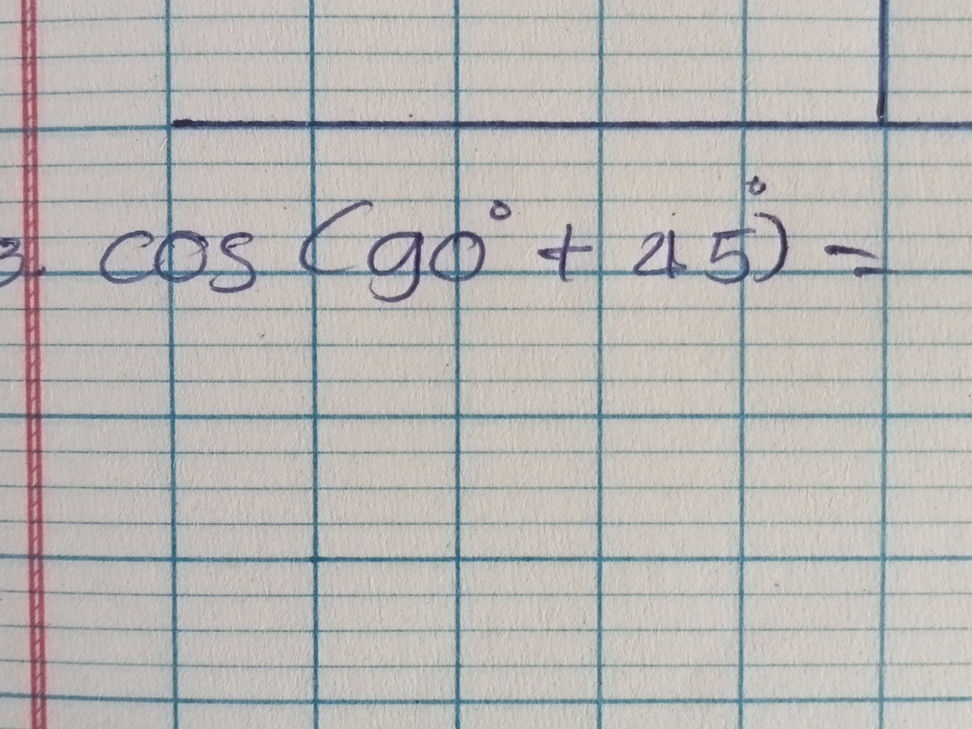 3. cos (90° + 45°) =